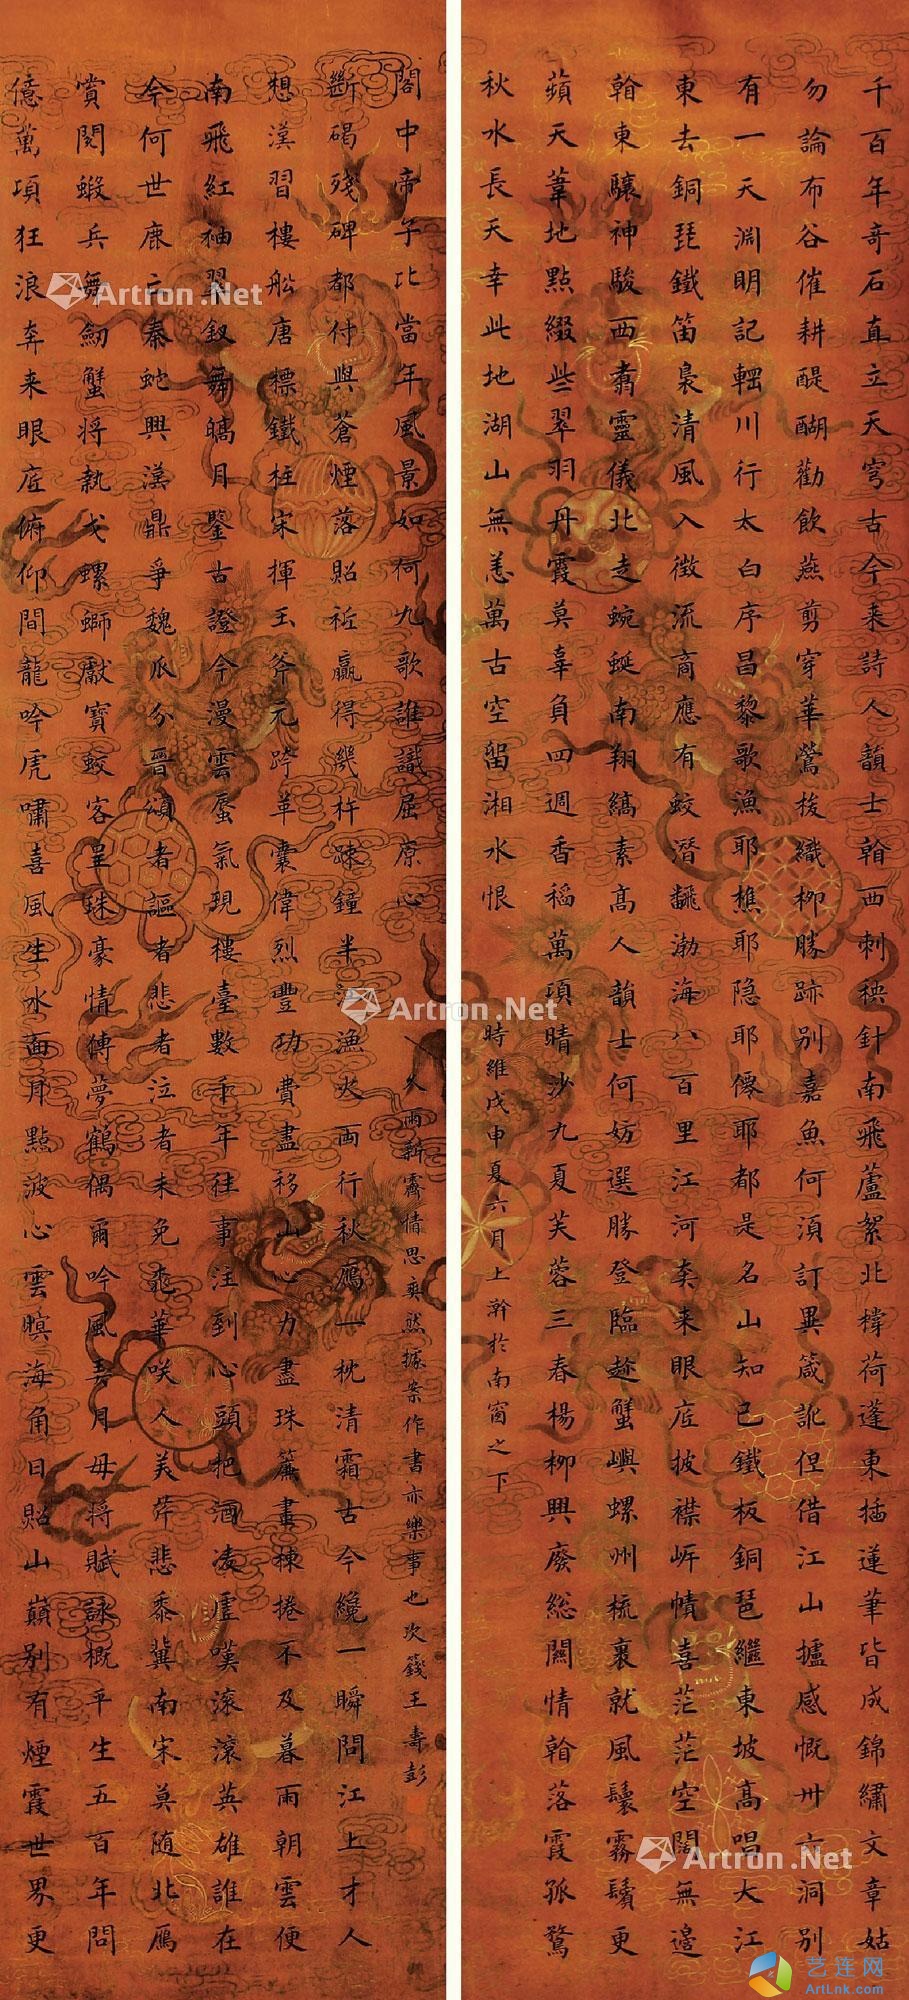 千百年奇石直立天穹古今来詩人韻士翰西刺秧針南飛蘆絮北樟荷蓬東插蓮筆皆成錦繡文章姑
勿論布谷催耕醍醐勸飲燕剪穿華鶯梭織柳勝跡别嘉魚何須訂異箴訛但借江山攄感慨卅六洞别
有一天淵明記輞川行太白序昌黎歌漁耶樵耶隐耶僊耶都是名山知己鐵板銅琶繼東坡高唱大江
東去銅琵鐵笛裊清風入徵流商應有蛟潛飜渤海八百里江河奔来眼底披襟岸幘喜茫茫空闊無邊
翰東驤神駿西翥靈儀北走蜿蜒南翔縞素高人韻士何妨選勝登臨趂蟹嶼螺州梳裹就風鬟霧鬢更
蘋天葦地點綴些翠羽丹霞莫辜負四週香稻萬頃晴沙九夏芙蓉三春楊柳興廢総關情翰落霞孤鶩
秋水長天幸此地湖山無恙萬古空留湘水恨
時維戊申夏六月上澣於南窗之下
億萬頃狂浪奔来眼底俯仰間龍吟虎嘯喜風生水面月點波心雲瞑海角日照山巔别有煙霞世界更
賞閲蝦兵舞劒蟹将執戈螺螄獻寶蛟客呈珠豪情傳夢鶴偶爾吟風弄月毋将賦詠概平生五百年問
今何世鹿亡秦蛇興漢鼎爭魏瓜分晉頌者謳者悲者泣者未免桃華咲人美芹悲黍冀南宋莫随北鴈
南飛紅袖翠釵舞皜月鑒古證今漫雲蜃氣現樓臺數千年往事注到心頭把酒凌虛嘆滾滾英雄誰在
想漢習樓船唐標鐵柱宋揮玉斧元跨革囊偉烈豐功費盡移山心力盡珠簾畫棟捲不及暮雨朝雲便
斷碣殘碑都付與蒼煙落照祗贏得幾杵疎鐘半江漁火両行秋鴈一枕清霜古今纔一瞬問江上才人
閣中帝子比當年風景如何九歌誰識屈原心
久雨新霽情思爽然據案作書亦樂事也次籛王壽彭
Artron.Net
Artron.Net
Artron.Net
艺连网
ArtLnk.com